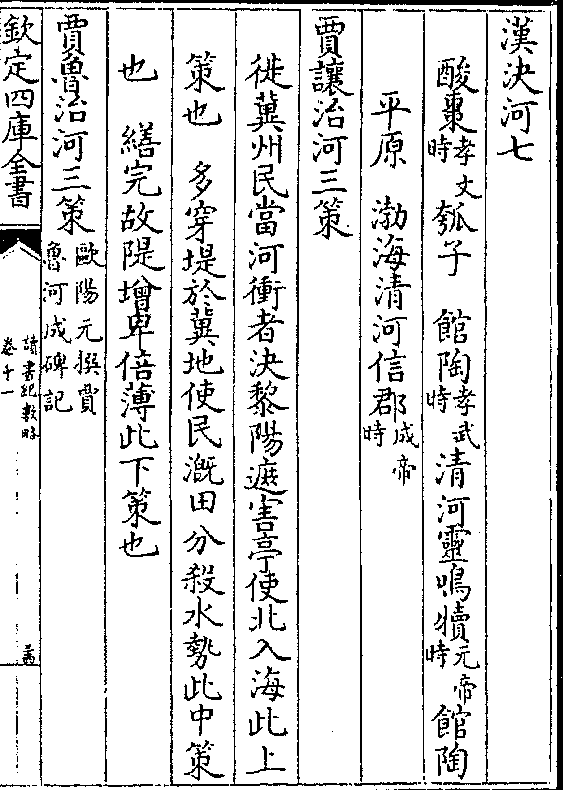 漢決河七
酸棗孝文時瓠子 館陶孝武時清河靈鳴犢元帝時館陶
平原 渤海清河信郡成帝時
賈讓治河三策
徙冀州民當河衝者決黎陽遮害亭使北入海此上
策也 多穿堤於冀地使民溉田分殺水勢此中策
也 繕完故隄增卑倍薄此下策也
賈魯治河三策歐陽元撰賈魯河成碑記
欽定四庫全書
讀書紀數略
卷十一